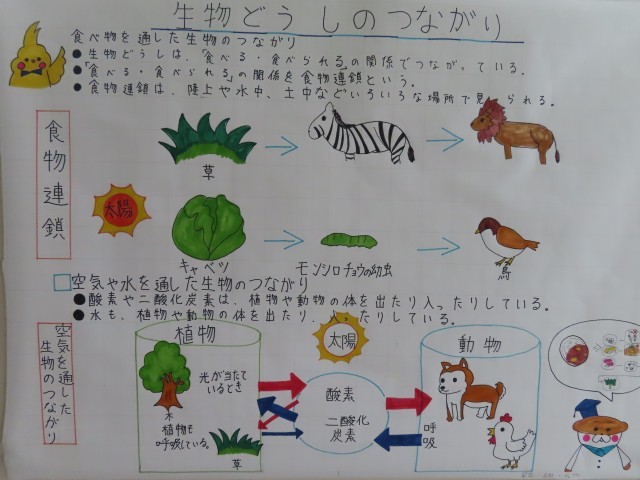 生物どうしのつながり
食べ物を通した生物のつながり
●生物どうしは、「食べる・食べられる」の関係でつながっている.
●「食べる・食べられる」の関係を食物連鎖という.
●食物連鎖は、陸上や水中、土中などいろいろな場所で見られる.
食物連鎖
草
太陽
キャベツ
モンシロチョウの幼虫
鳥
空気や水を通した生物のつながり
●酸素や二酸化炭素は、植物や動物の体を出たり入ったりしている.
●水も、植物や動物の体を出たり、入ったりしている.
空気を通した
生物のつながり
植物
光が当たて
いるとき
木
植物も
呼吸している.
草
太陽
酸素
二酸化
炭素
動物
呼吸